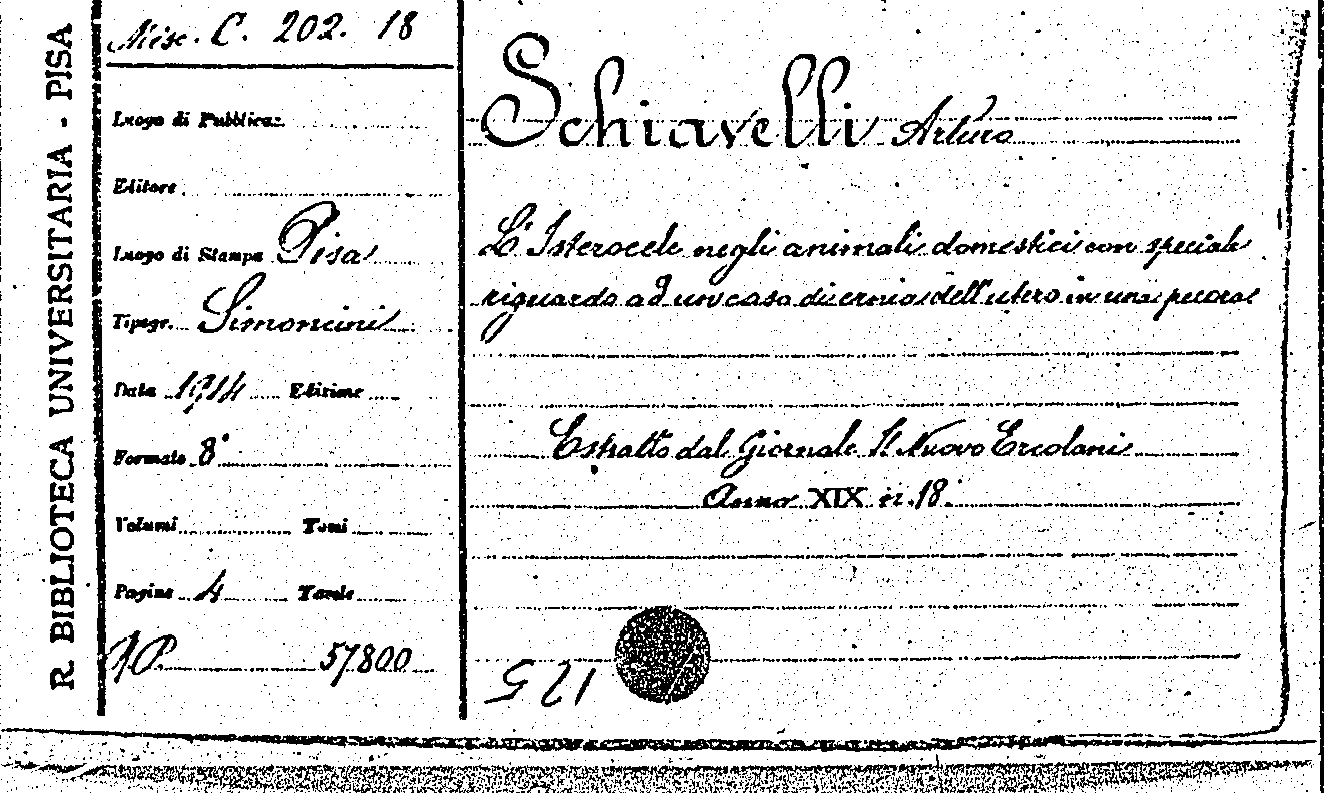 R. BIBLIOTECA UNIVERSITARIA - PISA
Misc. C. 202. 18
Luogo di Pubblicaz.
Editore
Luogo di Stampa Pisa
Tipogr. Simoncini
Data 1914 Edizione
Formato 8°
Volumi Tomi
Pagine 4 Tavole
57800
Schiavelli Arturo
L'Isterocele negli animali domestici con speciale
riguardo ad un caso di ernia dell'utero in una pecora
Estratto dal Giornale Il Nuovo Ercolani
Anno XIX n. 18.
125